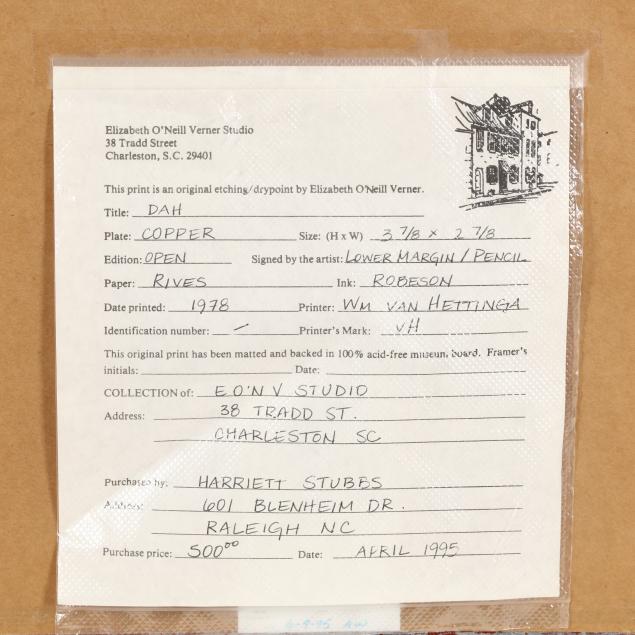 Elizabeth O'Neill Verner Studio
38 Tradd Street
Charleston, S.C. 29401
This print is an original etching/drypoint by Elizabeth O'Neill Verner.
Title: DAH
Plate: COPPER Size: (H x W) 3 7/8 x 2 7/8
Edition: OPEN Signed by the artist: LOWER MARGIN / PENCIL
Paper: RIVES Ink: ROBESON
Date printed: 1978 Printer: WM VAN HETTINGA
Identification number: — Printer's Mark: VH
This original print has been matted and backed in 100% acid-free museum board. Framer's
initials: Date:
COLLECTION of: E O'N V STUDIO
Address: 38 TRADD ST.
CHARLESTON SC
Purchased by: HARRIETT STUBBS
Address: 601 BLENHEIM DR.
RALEIGH NC
Purchase price: 500⁰⁰ Date: APRIL 1995